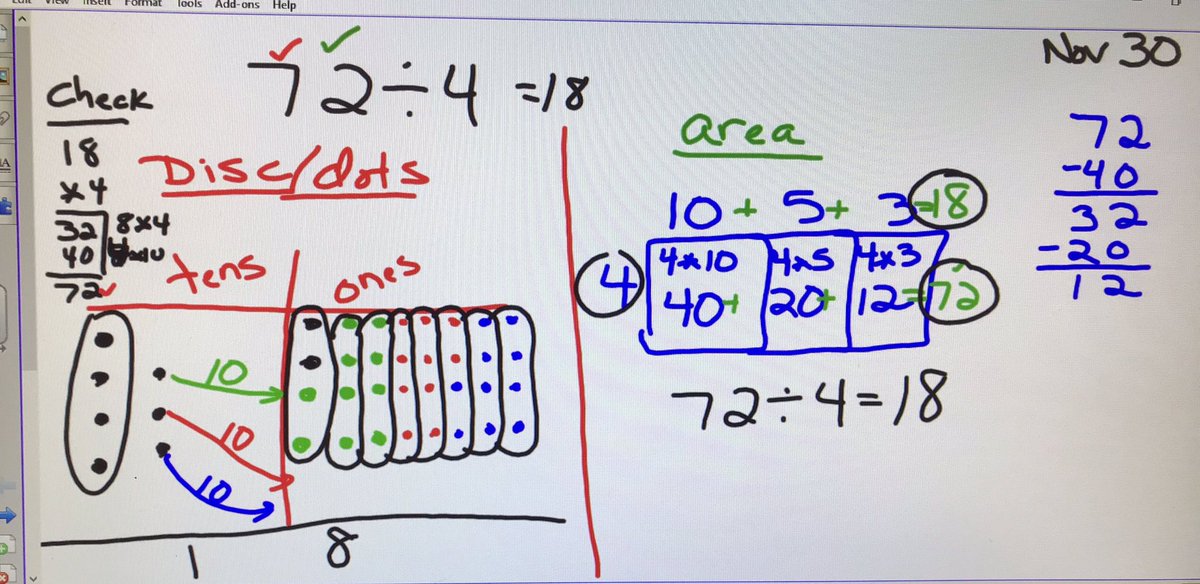 Edit View Insert Format Tools Add-ons Help
72÷4 =18
Nov 30
Check
18
x4
32 8x4
40
72
Disc/dots
tens ones
10
10
10
1 8
area
10 + 5 + 3 =18
4 4x10 4x5 4x3
40+ 20+ 12=72
72÷4=18
72
-40
32
-20
12